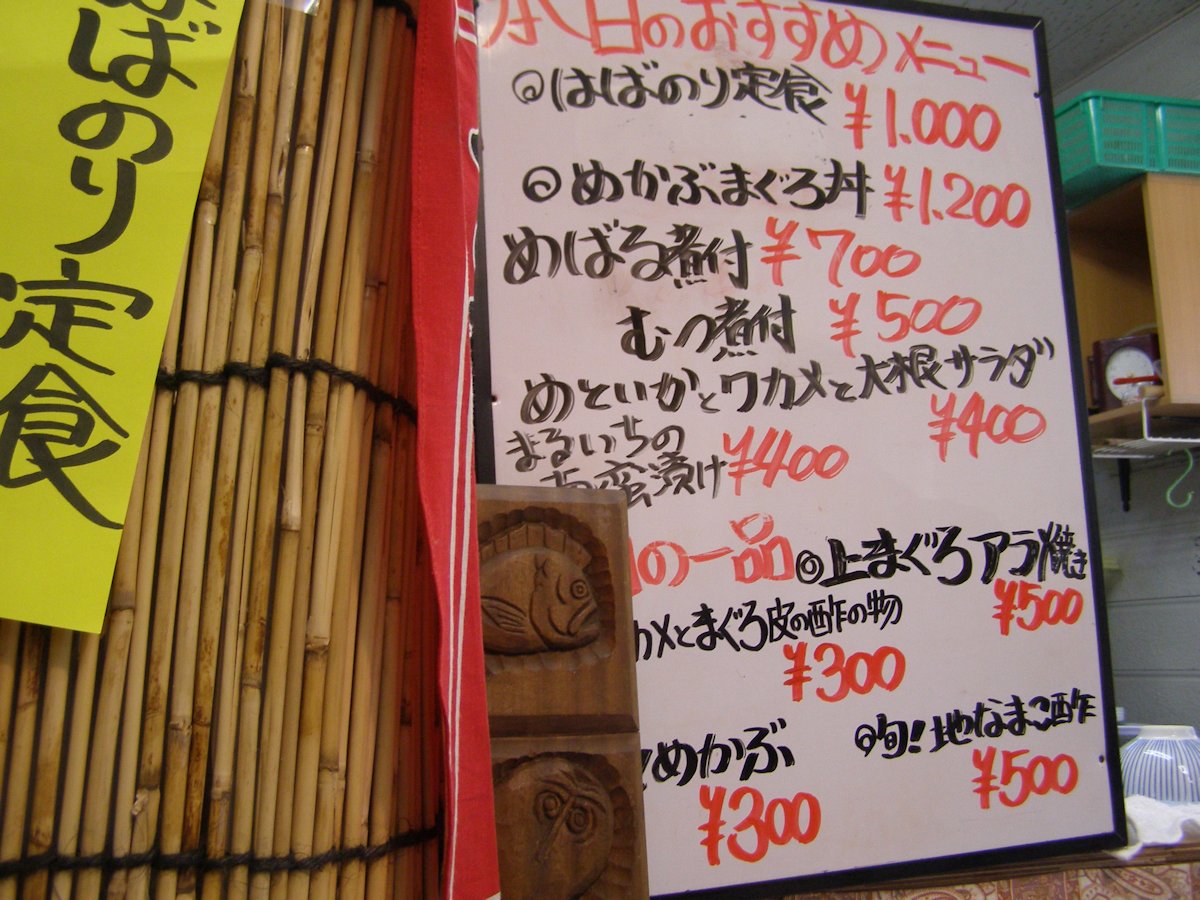 ばのり定食
本日のおすすめメニュー
◎はばのり定食 ¥1.000
◎めかぶまぐろ丼 ¥1.200
めばる煮付 ¥700
むつ煮付 ¥500
めといかとワカメと大根サラダ ¥400
まるいちの
蜜漬け ¥400
の一品
◎上まぐろアラ焼き ¥500
カメとまぐろ皮の酢の物 ¥300
めかぶ ¥300
◎旬!地なまこ酢 ¥500